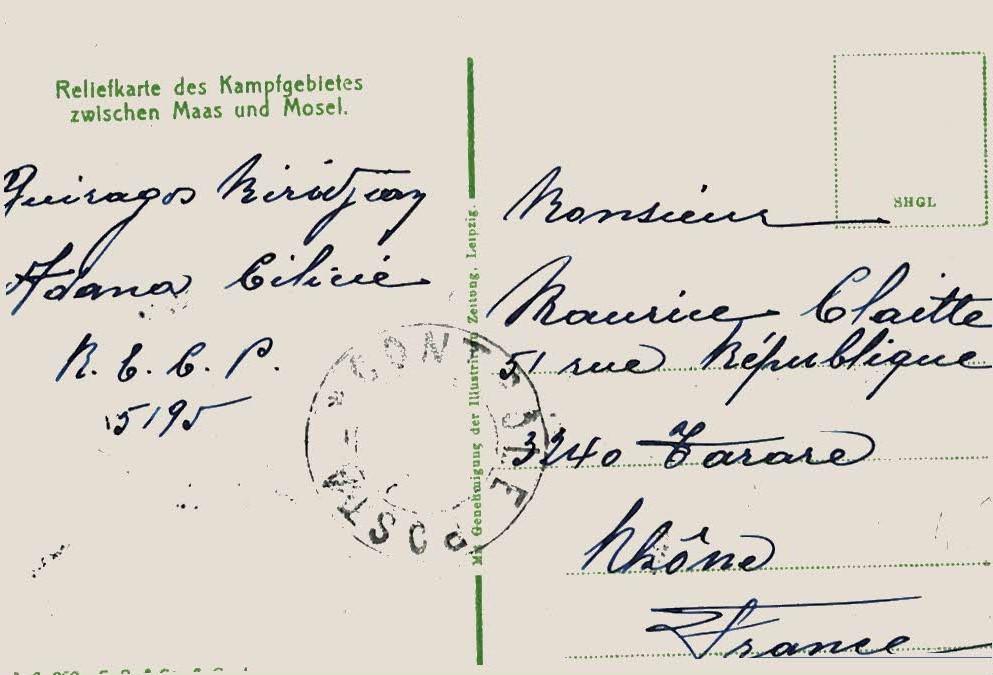 Reliefkarte des Kampfgebietes
zwischen Maas und Mosel.
Adana Cilicie
R. E. C. P.
5195
Mit Genehmigung der Illustrirten Zeitung, Leipzig.
CONTROLE
POSTAL
SHGL
Monsieur
Maurice Claitte
51 rue République
3240 Tarare
Rhône
France